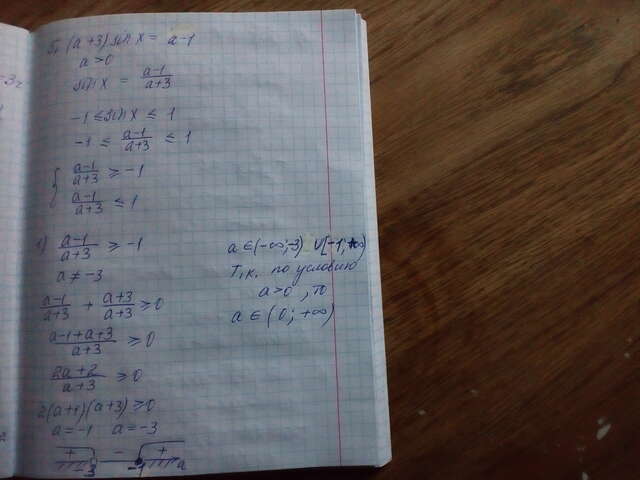 5. (a+3) sin x = a-1
a>0
sin x = \frac{a-1}{a+3}
-1 ≤ sin x ≤ 1
-1 ≤ \frac{a-1}{a+3} ≤ 1
{ \frac{a-1}{a+3} ≥ -1
\frac{a-1}{a+3} ≤ 1
1) \frac{a-1}{a+3} ≥ -1
a ≠ -3
\frac{a-1}{a+3} + \frac{a+3}{a+3} ≥ 0
\frac{a-1+a+3}{a+3} ≥ 0
\frac{2a+2}{a+3} ≥ 0
2(a+1)(a+3) ≥ 0
a = -1 a = -3
+ - +
-3 -1 a
a ∈ (-∞;-3) ∪ [-1;+∞)
Т.к. по условию
a>0, то
a ∈ (0; +∞)